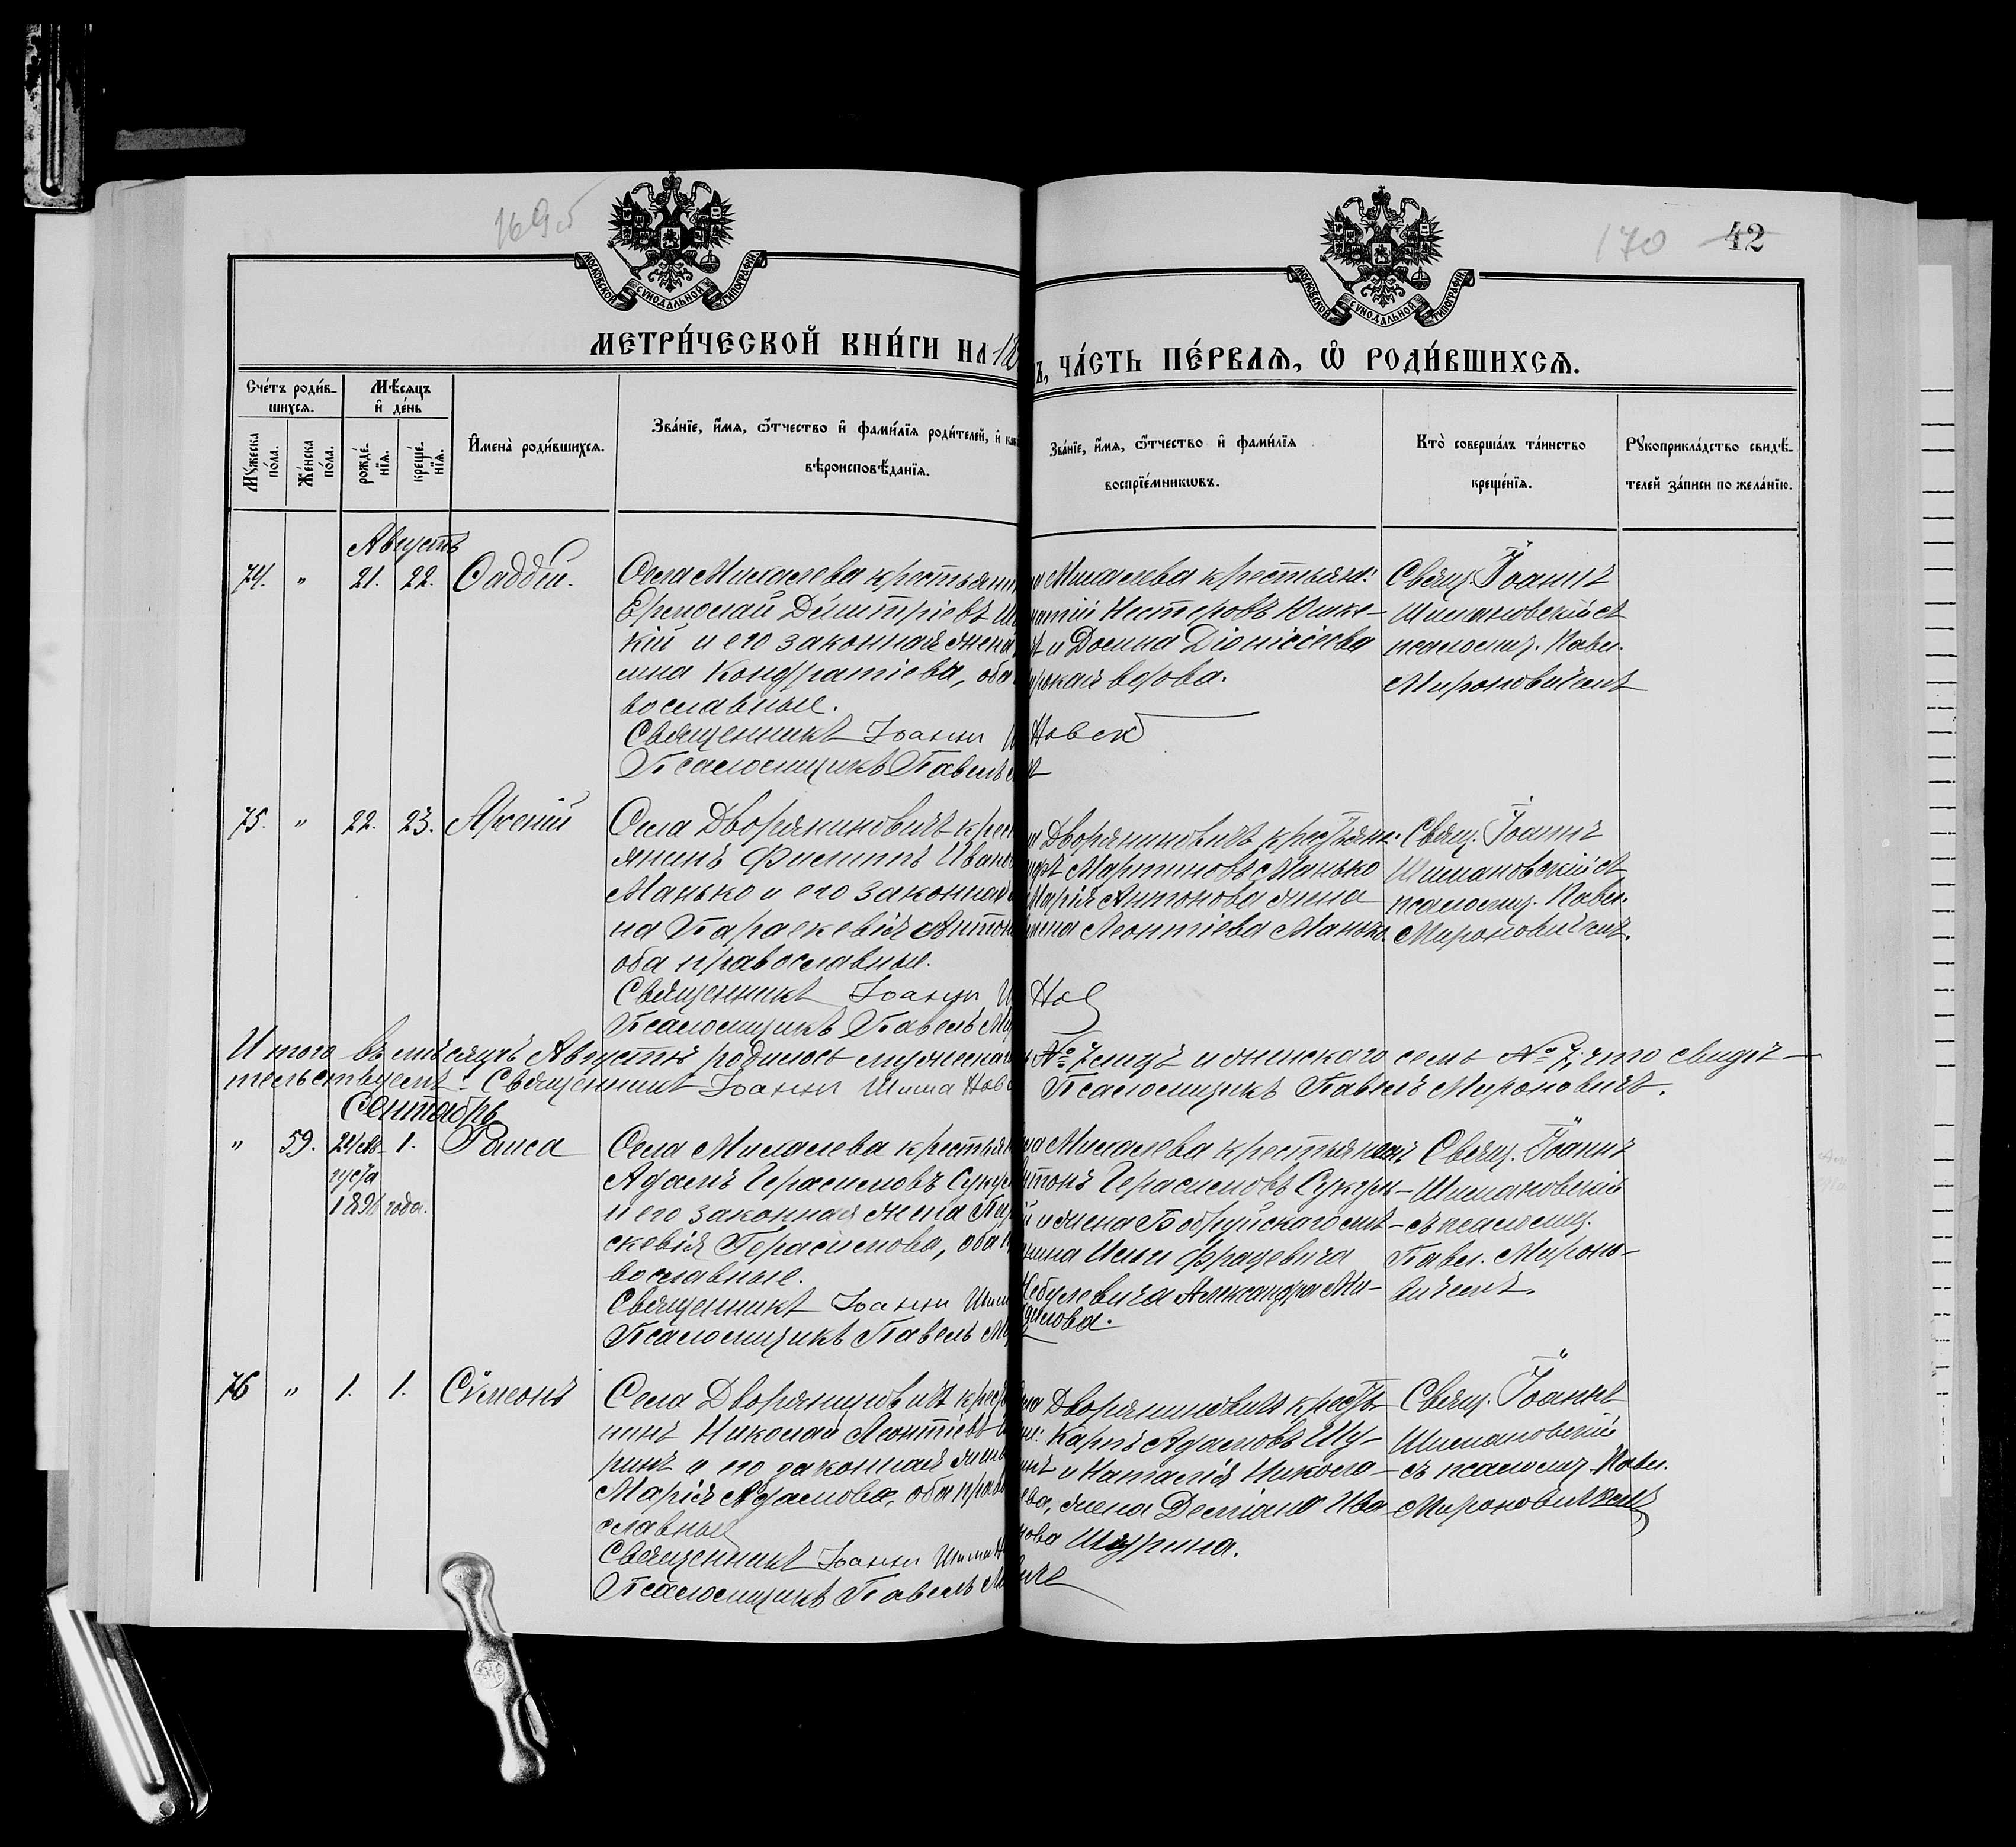 169об
170 42
МОСКОВСКОЙ СУНОДАЛЬНОЙ ТИПОГРАФІИ
МОСКОВСКОЙ СУНОДАЛЬНОЙ ТИПОГРАФІИ
МЕТРИ́ЧЕСКОЙ КНИ́ГИ НА 18
Ъ, ЧА́СТЬ ПЕ́РВАЯ, Ѡ РОДИ́ВШИХСЯ.
Сче́тъ роди́в-
шихся.
Мѣ́сяцъ
и҆ де́нь
Мꙋ́жеска по́ла.
Же́нска по́ла.
рожде́-
нїя.
креще́-
нїя.
И҆мена̀ роди́вшихся.
Зва́нїе, и҆́мя, ѻ҆́тчество и҆ фами́лїя роди́телей, и҆
вѣроисповѣ́данїя.
Зва́нїе, и҆́мя, ѻ҆́тчество и҆ фами́лїя
воспрїе́мникѡвъ.
Кто̀ соверша́лъ та́инство
креще́нїя.
Рꙋкоприкла́дство свидѣ́-
телей за́писи по жела́нїю.
Августъ
74. " 21. 22. Ѳаддей.
Села Михалева крестьянин
Ермолай Димитріевъ
кій и его законная жена
Кондратіева, оба
вославные.
Священникъ Іоаннъ
Псаломщикъ Павелъ
Михалева крестьян:
Нестеровъ Юшке-
и Домна Діонисіева
вдова.
новск
Свящ. Іоаннъ
Шимановскій съ
псаломщ. Павл.
Мироновичемъ
75. " 22. 23. Арсеній
Села Дворяниновичъ крест
янинъ Филиппъ Иванов
Манько и его законная
на Параскевія Антон
оба православные.
Священникъ Іоаннъ
Псаломщикъ Павелъ Ми
Дворяниновичъ крестьян.
Мартиновъ Манько
Марія Антонова жена
Леонтіева Манько.
Нов
Свящ. Іоаннъ
Шимановскій съ
псаломщ. Павл.
Мироновичемъ.
Итого въ мѣсяцѣ Августѣ родилось мужескаго № 7 семь и женскаго семь № 7, что свидѣ-
тельствуемъ: Священникъ Іоаннъ Шиманов Псаломщикъ Павелъ Мироновичъ.
Сентябрь
" 59. 24 Ав- 1. Раиса
густа
1898 года.
Села Михалева крестьян
Адамъ Герасимовъ
и его законная жена Пар
скевія Герасимова, оба
вославные.
Священникъ Іоаннъ Шим
Псаломщикъ Павелъ Ми
Михалева крестьянинъ
Герасимовъ
и жена Бобруйскаго мѣ-
Александра Ми-
Свящ. Іоаннъ
Шимановскій
съ псаломщ.
Павл. Мироно-
вичемъ.
76 " 1. 1. Сѵмеонъ
Села Дворяниновичъ крестья
нинъ Николай Леонтіевъ
ринъ и его законная жена
Марія Адамова, оба право
славные
Священникъ Іоаннъ Шиман
Псаломщикъ Павелъ Ми
Дворяниновичъ кресть-
Карпъ Адамовъ Шу-
и Наталія Никола-
ева, жена Деміана Ива-
нова Шурина.
Свящ. Іоаннъ
Шимановскій
съ псаломщ. Павл.
Мироновичемъ